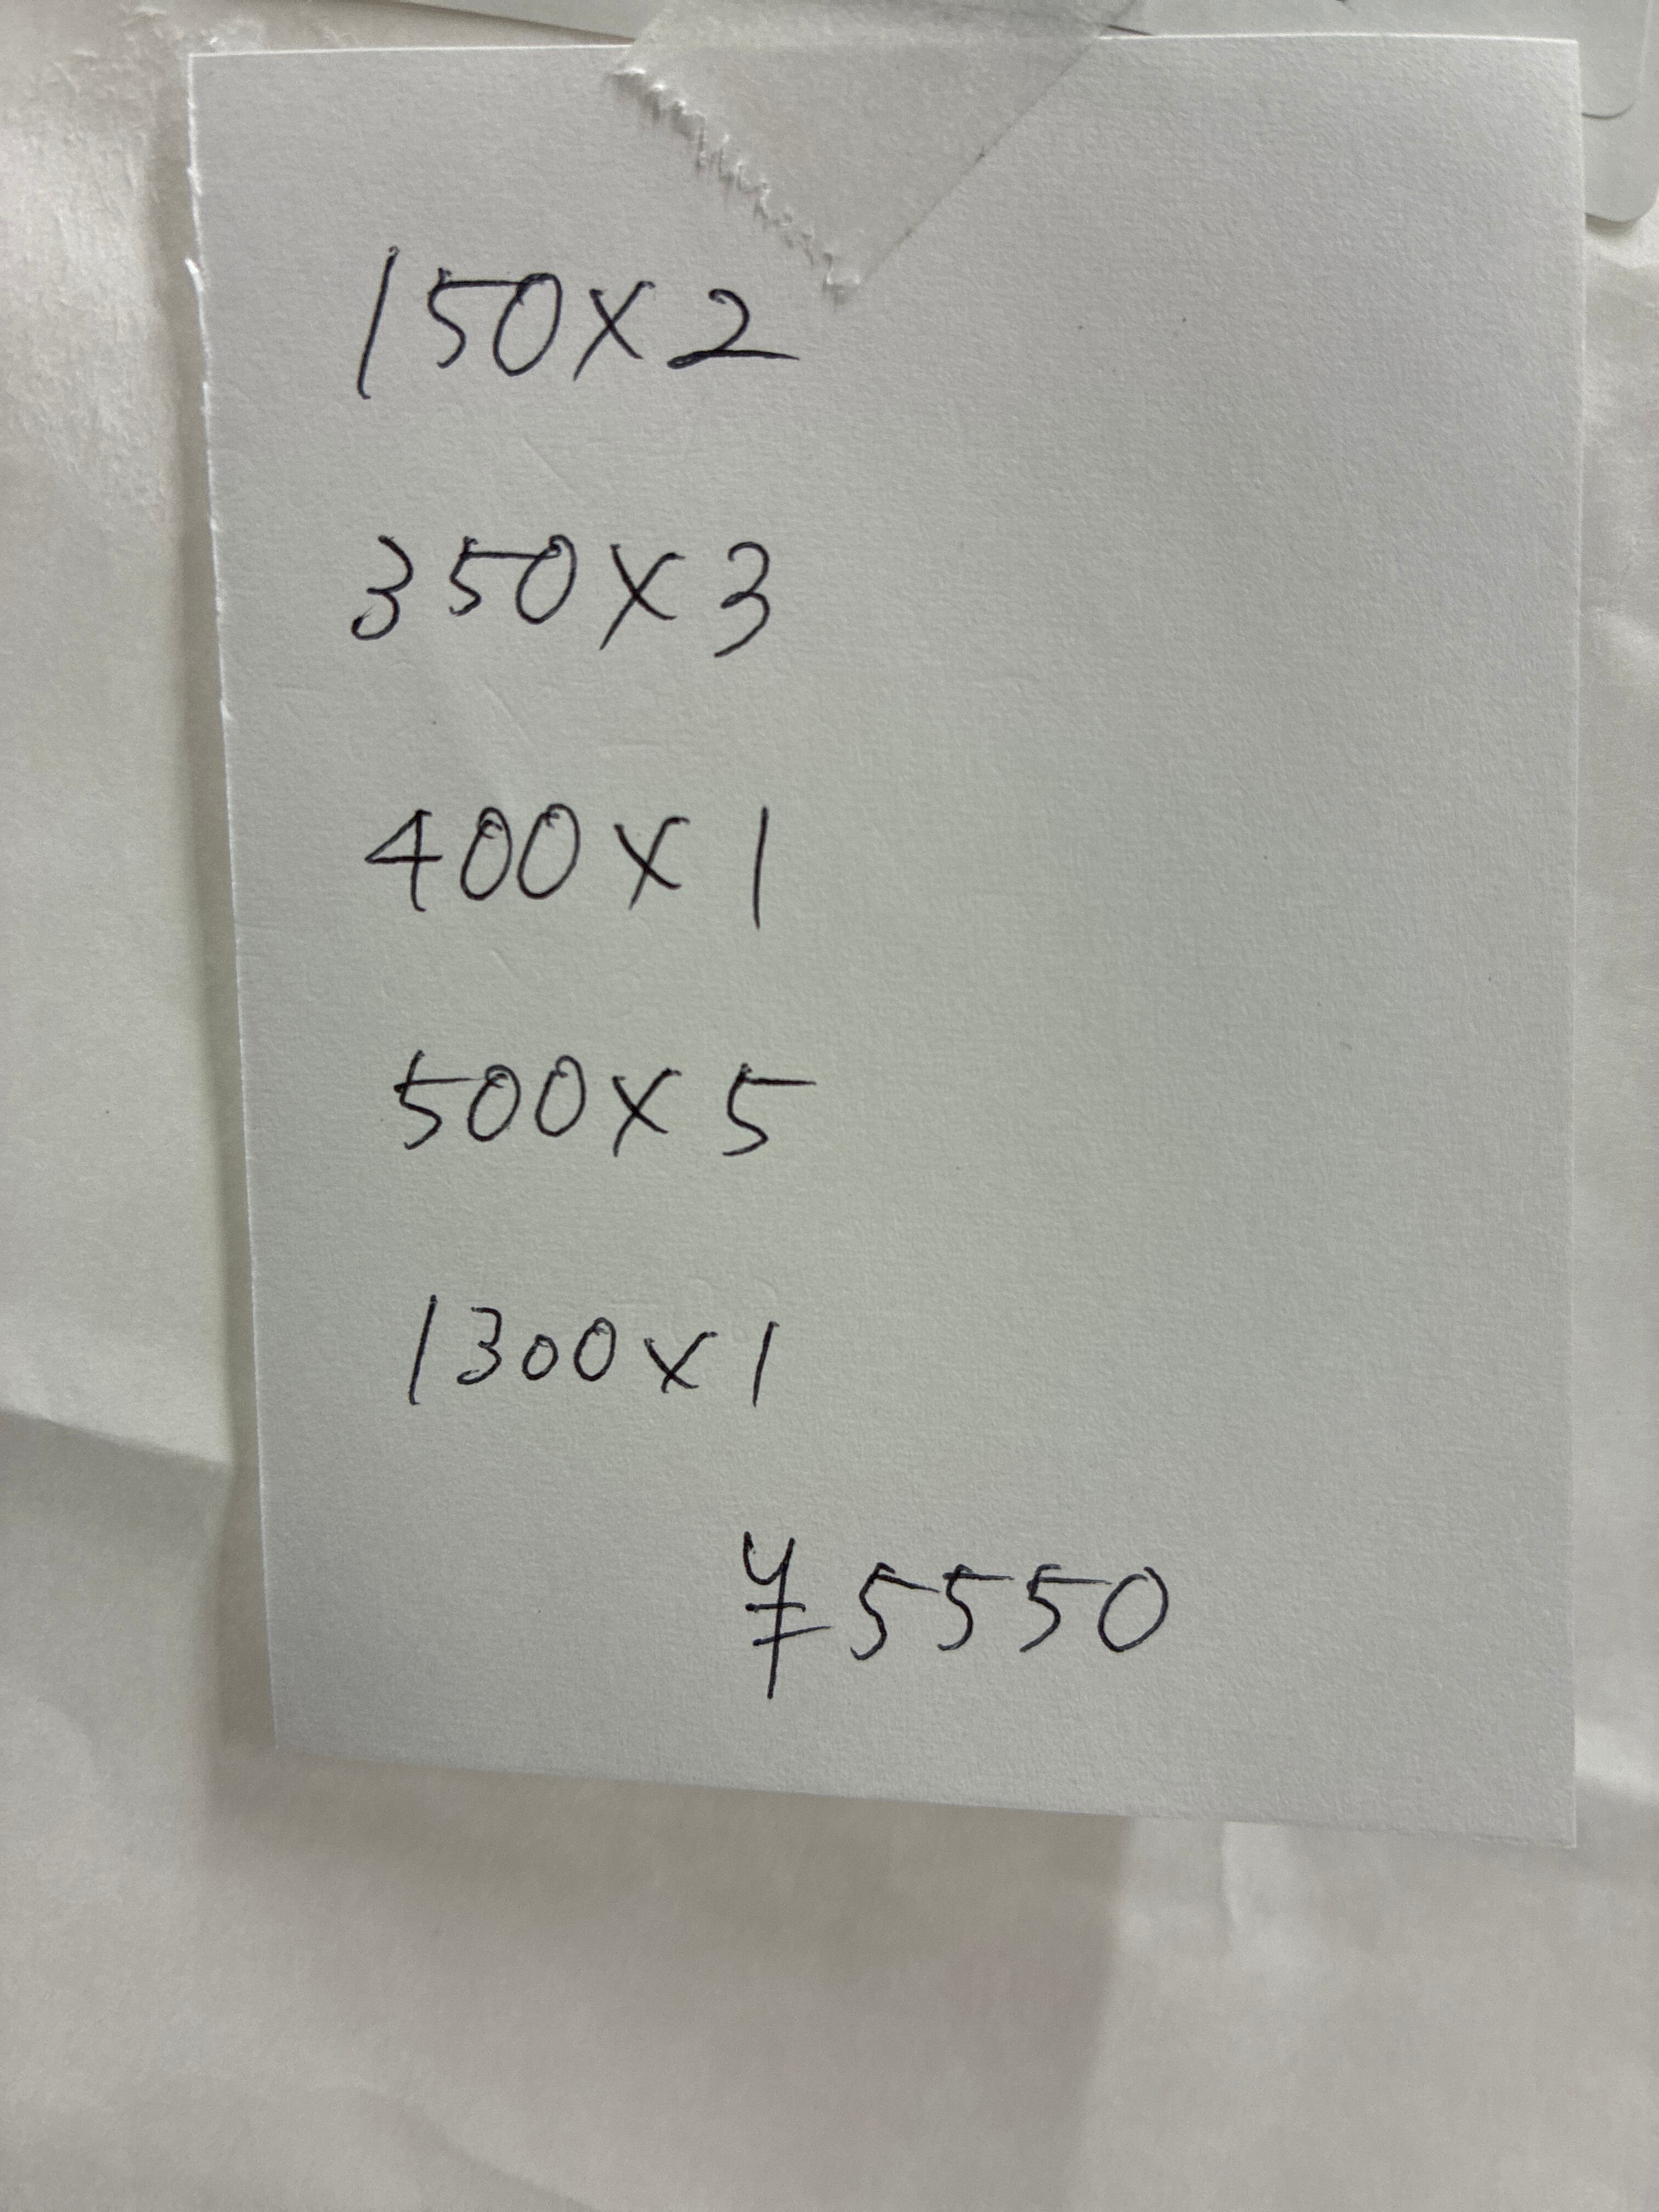 150×2
350×3
400×1
500×5
1300×1
¥5550